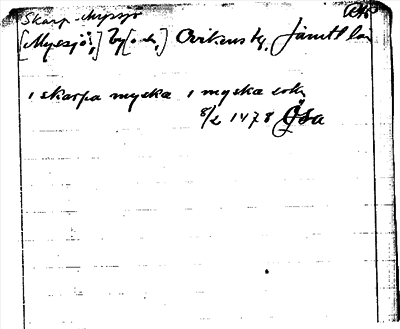 Skarp Myssjö
[Myssjö,] by[o. sn,] Ovikens tg, Jämtl. län
i skarpa myska i myska sokn
8/2 1478 ÖSa